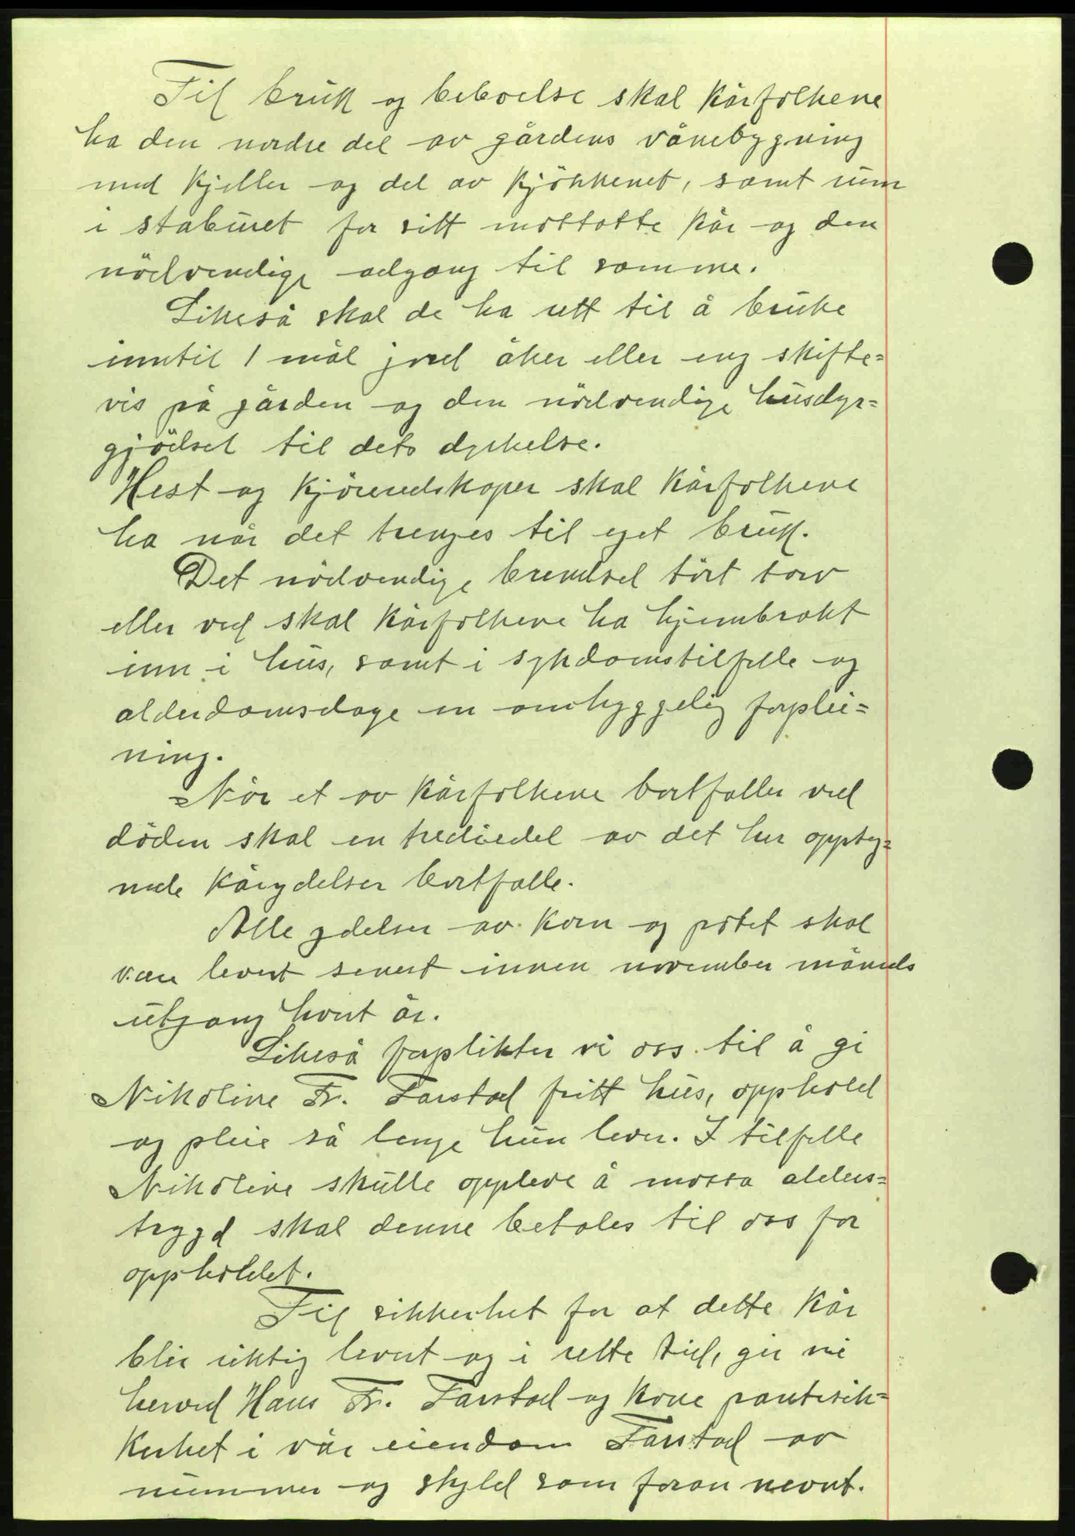 Til bruk og beboelse skal kårfolkene
ha den nordre del av gårdens vånebygning
med kjeller og del av kjökkenet, samt rum
i staburet for sitt mottatte kår og den
nödvendige adgang til samme.
Likeså skal de ha rett til å bruke
inntil 1 mål jord åker eller eng skifte=
vis på gården og den nödvendige husdyr=
gjödsel til dets dyrkelse.
Hest og kjöreredskaper skal kårfolkene
ha når det trenges til eget bruk.
Det nödvendige brendsel tört torv
eller ved skal kårfolkene ha hjembrakt
inn i hus, samt i sykdomstilfelle og
alderdomsdage en omhyggelig forplei=
ning.
Når et av kårfolkene bortfaller ved
döden skal en trediedel av det her oppteg=
nede kårydelser bortfalle.
Alle ydelser av korn og potet skal
være levert senest innen november måneds
utgang hvert år.
Likeså forplikter vi oss til å gi
Nikoline Fr. Farstad fritt hus, opphold
og pleie så lenge hun lever. I tilfelle
Nikoline skulle oppleve å motta alders=
trygd skal denne betales til oss for
oppholdet.
Til sikkerhet for at dette kår
blir riktig levert og i rette tid, gir vi
herved Hans Fr. Farstad og kone pantesik=
kerhet i vår eiendom Farstad av
nummer og skyld som foran nevnt.